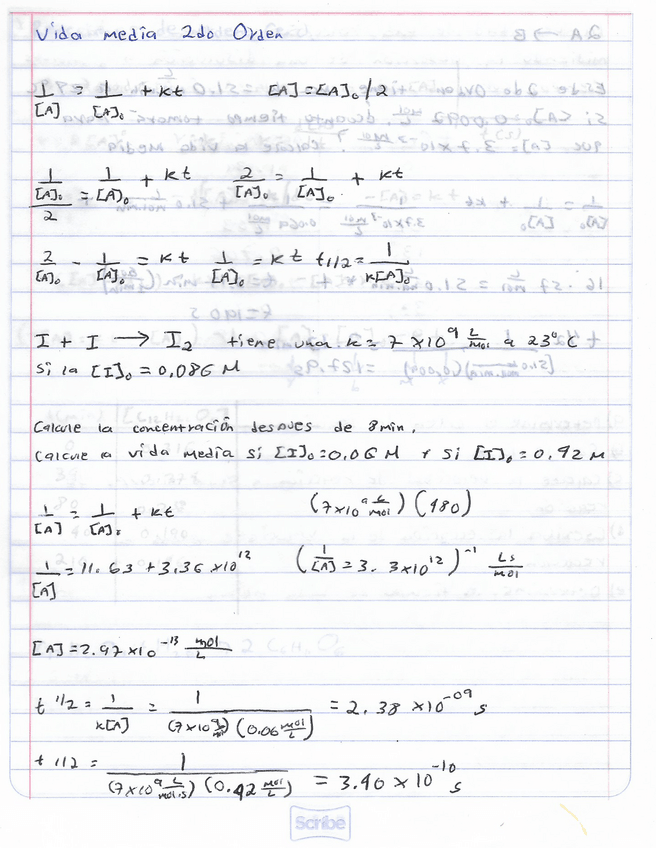 Vida media 2do Orden
1/[A] = 1/[A]₀ + kt [A] = [A]₀/2
1/([A]₀/2) = 1/[A]₀ + kt 2/[A]₀ = 1/[A]₀ + kt
2/[A]₀ - 1/[A]₀ = kt 1/[A]₀ = kt t1/2 = 1/k[A]₀
I + I → I₂ tiene una k = 7 x10⁹ L/mol a 23°C
Si la [I]₀ = 0,086 M
Calcule la concentración despues de 8min,
Calcule la vida media si [I]₀=0,06 M y si [I]₀ = 0,42 M
1/[A] = 1/[A]₀ + kt (7x10⁹ L/mol) (480)
1/[A] = 11.63 + 3,36 x10¹² (1/[A] = 3.3x10¹²)⁻¹ Ls/mol
[A] = 2.97 x10⁻¹³ mol/L
t 1/2 = 1/k[A] = 1/(7x10⁹) (0.06 mol/L) = 2.38 x10⁻⁰⁹ s
t 1/2 = 1/(7x10⁹ L/mol.s) (0.42 mol/L) = 3.40 x 10⁻¹⁰ s
Scribe